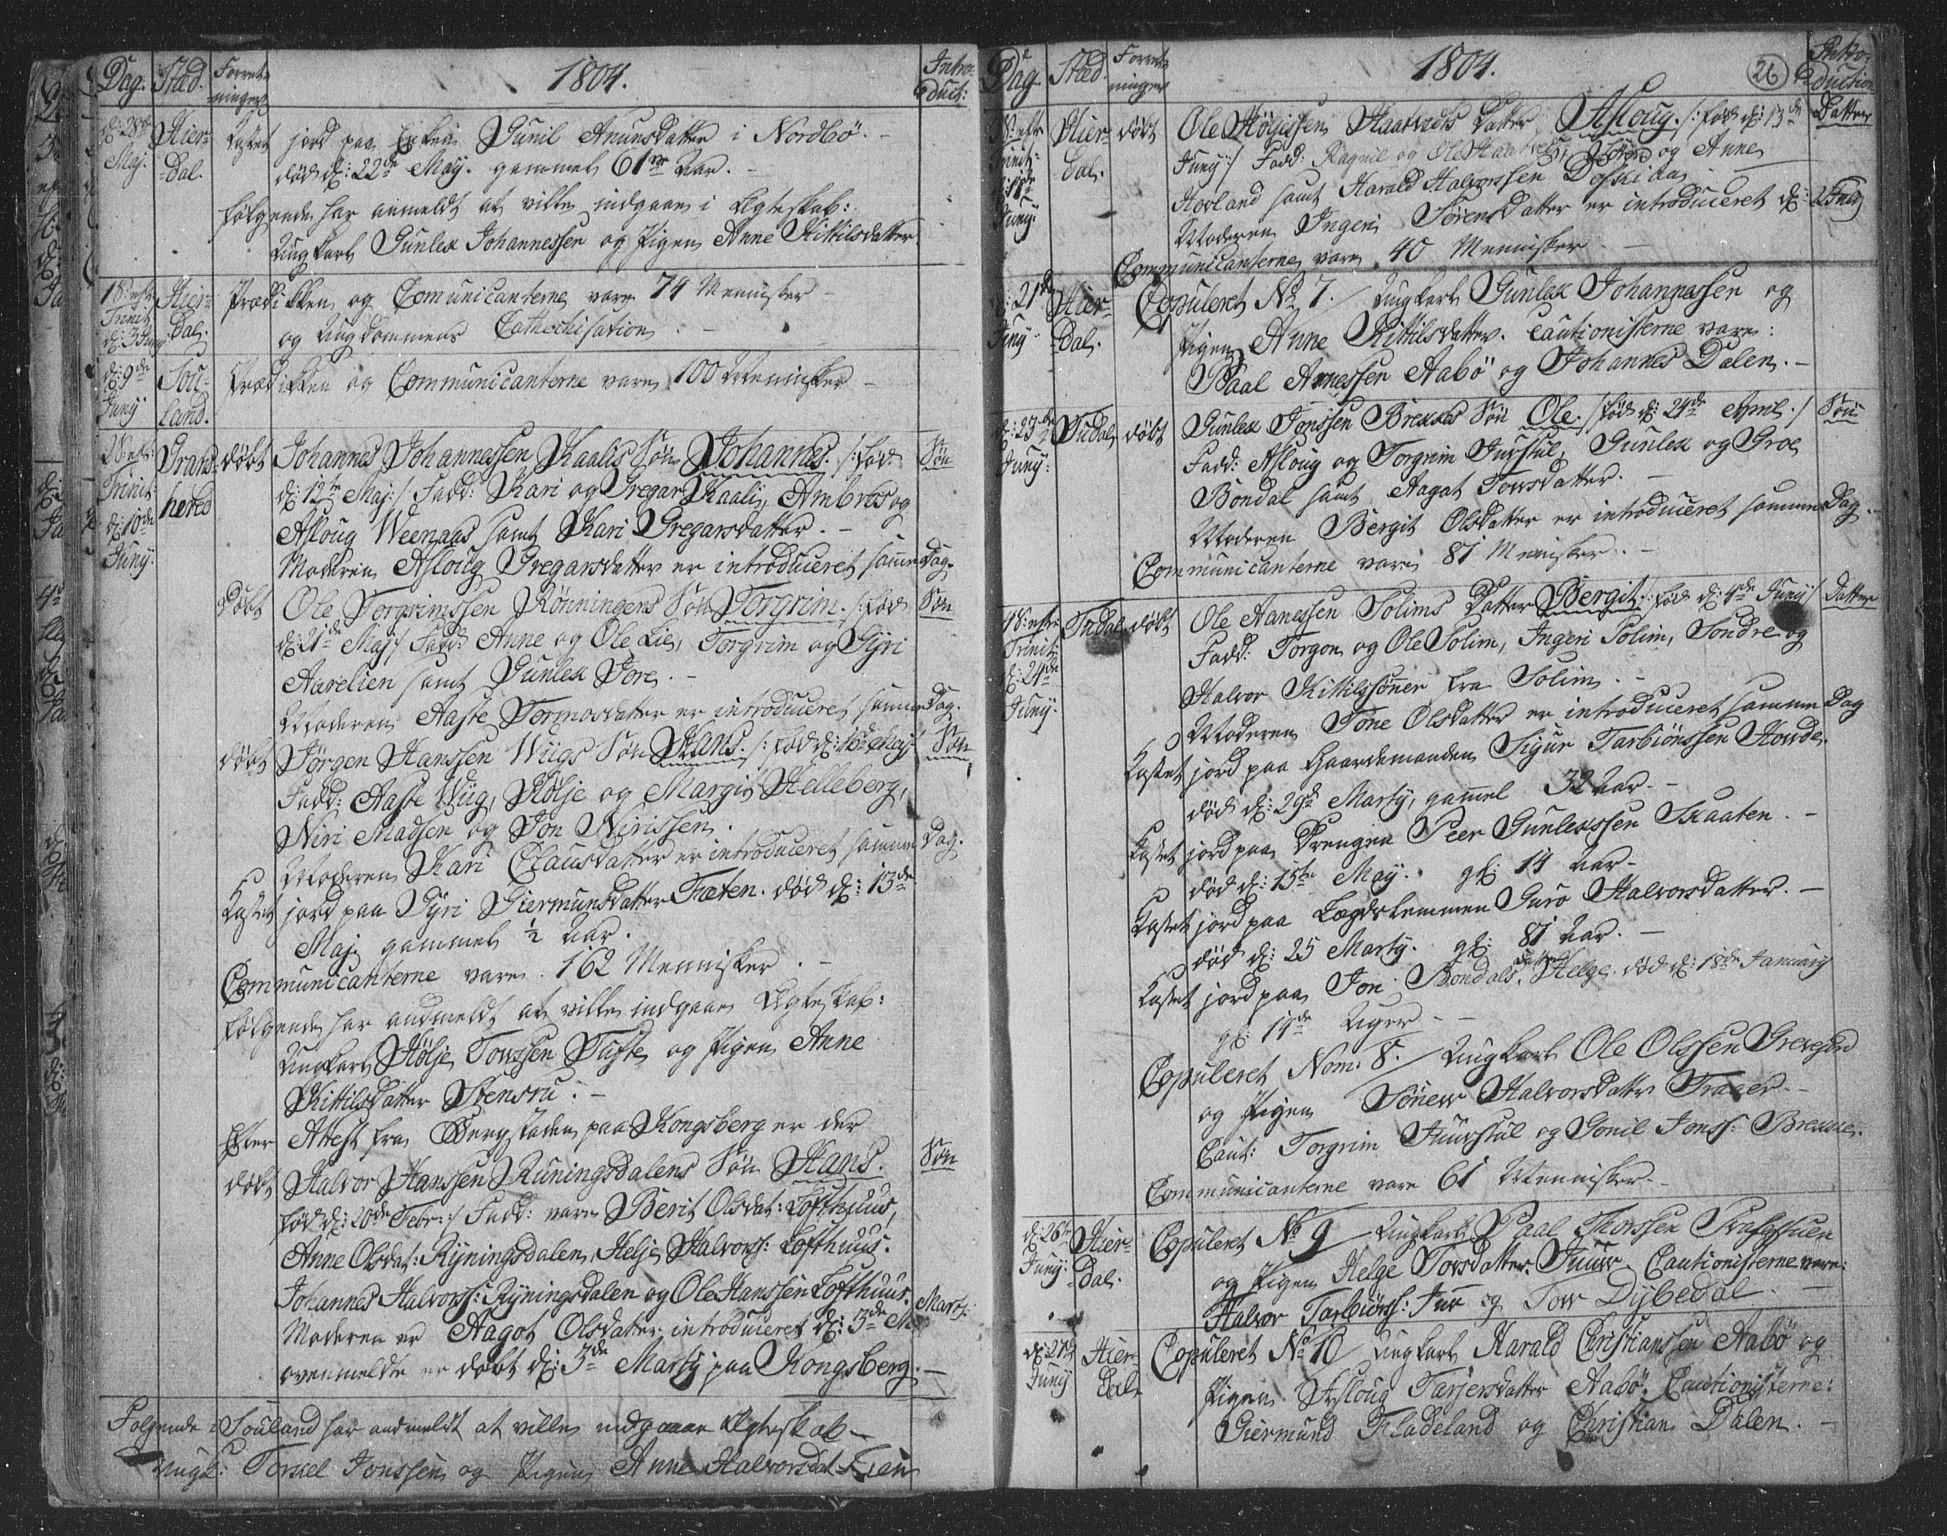 Dag. Stæd. Forret-
ninger 1804. Intro-
duct:
d: 28de Maj. Hier-
dal. Kastet jord paa Enken Gunil Amunsdatter i Nordbö. -
död d: 22de May. gammel 61 Aar. -
Følgende har anmeldt at ville indgaae i Ægteskab:
Ungkarl Gunlex Johannessen og Pigen Anne Kittilsdatter
1S: eft: Trinit d: 3 Juny Hier-
dal. Prædikken og Comunicanterne vare 74 Mennisker
og Ungdommens Cathechisation
d: 9de Juny Sou-
land. Prædikken og Communicanterne vare 100 Mennisker -
2S: eft: Trinit: d: 10de Juny. Grans-
hered döbt Johannes Johannessen Kaalis Sön Johannes. /: föd Sön
d: 12te Maj :/ Fadd: Kari og Gregar Kaali, Ambros og
Asloug Weenaas samt Kari Gregarsdatter. -
Moderen Asloug Gregarsdatter er introduceret samme Dag.
Döbt Ole Torgrimssen Rönningens Sön Torgrim. /: föd Sön
d: 21de Maj :/ Fadd: Anne og Ole Lie, Torgrim og Gyri
Aarelien samt Gunlex Gore. -
Moderen Aaste Tormosdatter er introduceret samme Dag.
döbt Jörgen Hanssen Wiigs Sön Hans. /: föd d: 16de Maj :/ Sön
Fadd: Aaste Wiig, Hölje og Margit Helleberg,
Niri Madsen og Jon Nirissen.
Moderen Kari Clausdatter er introduceret samme Dag.
Kastet jord paa Gyri Giermunsdatter Træten. död d: 13de
Maj gammel ½ Aar.
Communicanterne vare 162 Mennisker. -
Følgende har andmeldt at ville indgaae Ægteskab:
Ungkarl Hölje Towssen Tufte og Pigen Anne
Kittilsdatter Stensru. -
Efter Attest fra Bergstaden paa Kongsberg er der
döbt Halvor Hanssen Runingsdalens Sön Hans. Sön
föd d: 20de Febr: / Fadd: vare Berit Olsdat: Lofthuus,
Anne Olsdat: Ryningsdalen, Helje Halvors: Lofthuus.
Johannes Halvors: Ryningsdalen og Ole Hanssen Lofthuus.
Moderen er Aagot Olsdatter introduceret d: 3de Marty:
ovenmeldte er döbt d: 3de Marty paa Kongsberg. -
Folgende i Souland har andmeldt at ville indgaae Ægteskab -
Ungk: Torkel Jonssen og Pigen Anne Halvorsdat:
Dag. Stæd. Forret-
ninger 1804. 26 Intro-
duction
3S: eft: Trinit: d: 17de Juny Hier-
dal. döbt Ole Höljessen Haatvedts Datter Asloug. /: föd d: 13de Datter
Juny :/ Fadd: Ragnil og Ole Haatvet, og Anne
Hovland samt Harald Halvorssen
Moderen Ingeri Sörensdatter er introduceret d: July
Communicanterne vare 40 Mennisker
d: 21de Juny Hier-
dal. Copuleret No 7. / Ungkarl Gunlex Johannessen og
Pigen Anne Kittilsdatter. Cautionisterne vare:
Paal Arnessen Aabö og Johannes Dalen. -
d: 23de Juny: döbt Gunlex Jonssen Brekkes Sön Ole. / föd d: 24de April. / Sön
Fadd: Asloug og Torgrim Juvstul, Gunlex og Groe
Bondal samt Aagat Towsdatter. -
Moderen Bergit Olsdatter er introduceret samme Dag.
Communicanterne vare 81 Mennisker. -
4S: eft: Trinit: d: 24de Juny. döbt Ole Hanessen Solims Datter Bergit. /: föd d: 4de Juny / Datter
Fadd: Torgon og Ole Solim, Ingeri Solim, Sondre og
Halvor Kittilssönner fra Solim. -
Moderen Tone Olsdatter er introduceret samme Dag
Kastet jord paa Gaardemanden Sigur Tarbiönssen Howde.
död d: 29d Marty, gammel 32 Aar. -
Kastet jord paa Drengen Peer Gunlexssen Skaaten. -
död d: 15te May. gl: 14 Aar -
Kastet jord paa Lægdslemmen Guro Halvorsdatter. -
död d: 25 Marty. gl: 81 Aar. -
Kastet jord paa Jon Bondals Helge, död d: 18de January
gl: 14de Uger -
Copuleret Nom: 8. / Ungkarl Ole Olssen
og Pigen Halvorsdatter
Caut: Torgrim Juvstul og Gonil Jonss: Brekke.
Communicanterne vare 61 Mennisker -
d: 26te Juny: Hier-
dal. Copuleret No 9 Ungkarl Paal Thorssen
og Pigen Helge Towsdatter Juuv. Cautionisterne vare:
Halvor Tarbiönss: Juv og Tow Dybedal. -
d: 27de Juny Hier-
dal Copuleret No 10 / Ungkarl Harald Christianssen Aabö og
Pigen Asloug Tarjersdatter Aabö. Cautionisterne:
Giermund Fladeland og Christian Dalen. -